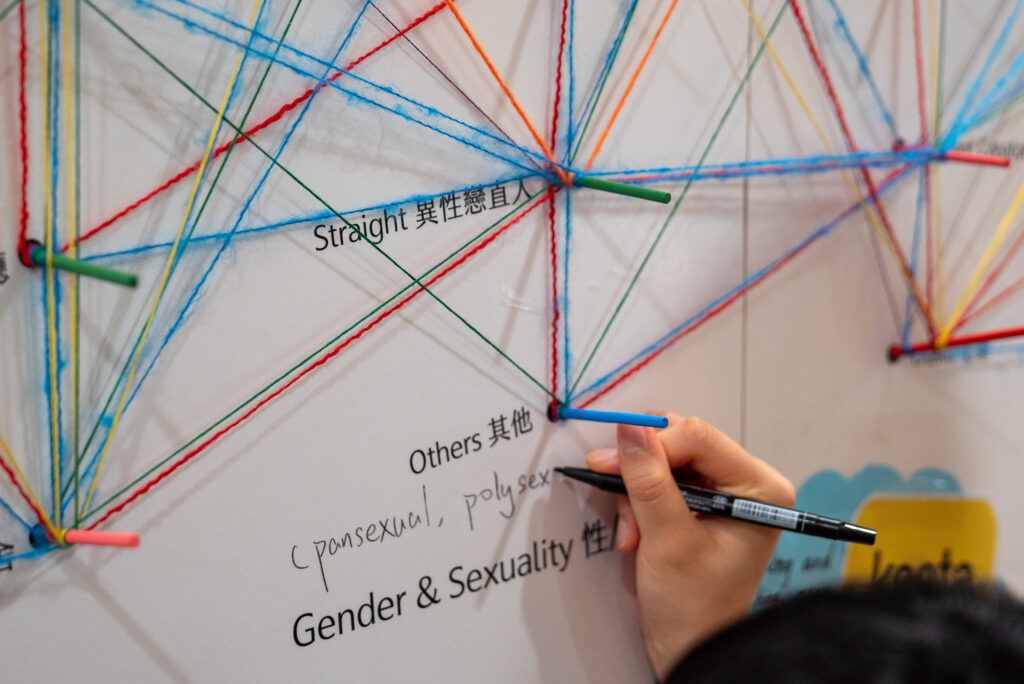 Straight 異性戀直人
Others 其他
(pansexual, polysex
Gender & Sexuality 性/
and